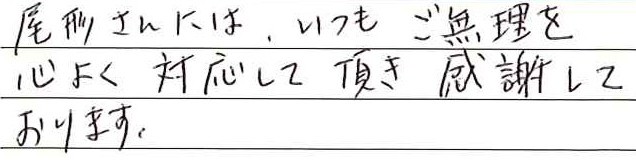 尾形さんには、いつも ご無理を
心よく 対応して 頂き 感謝して
おります。